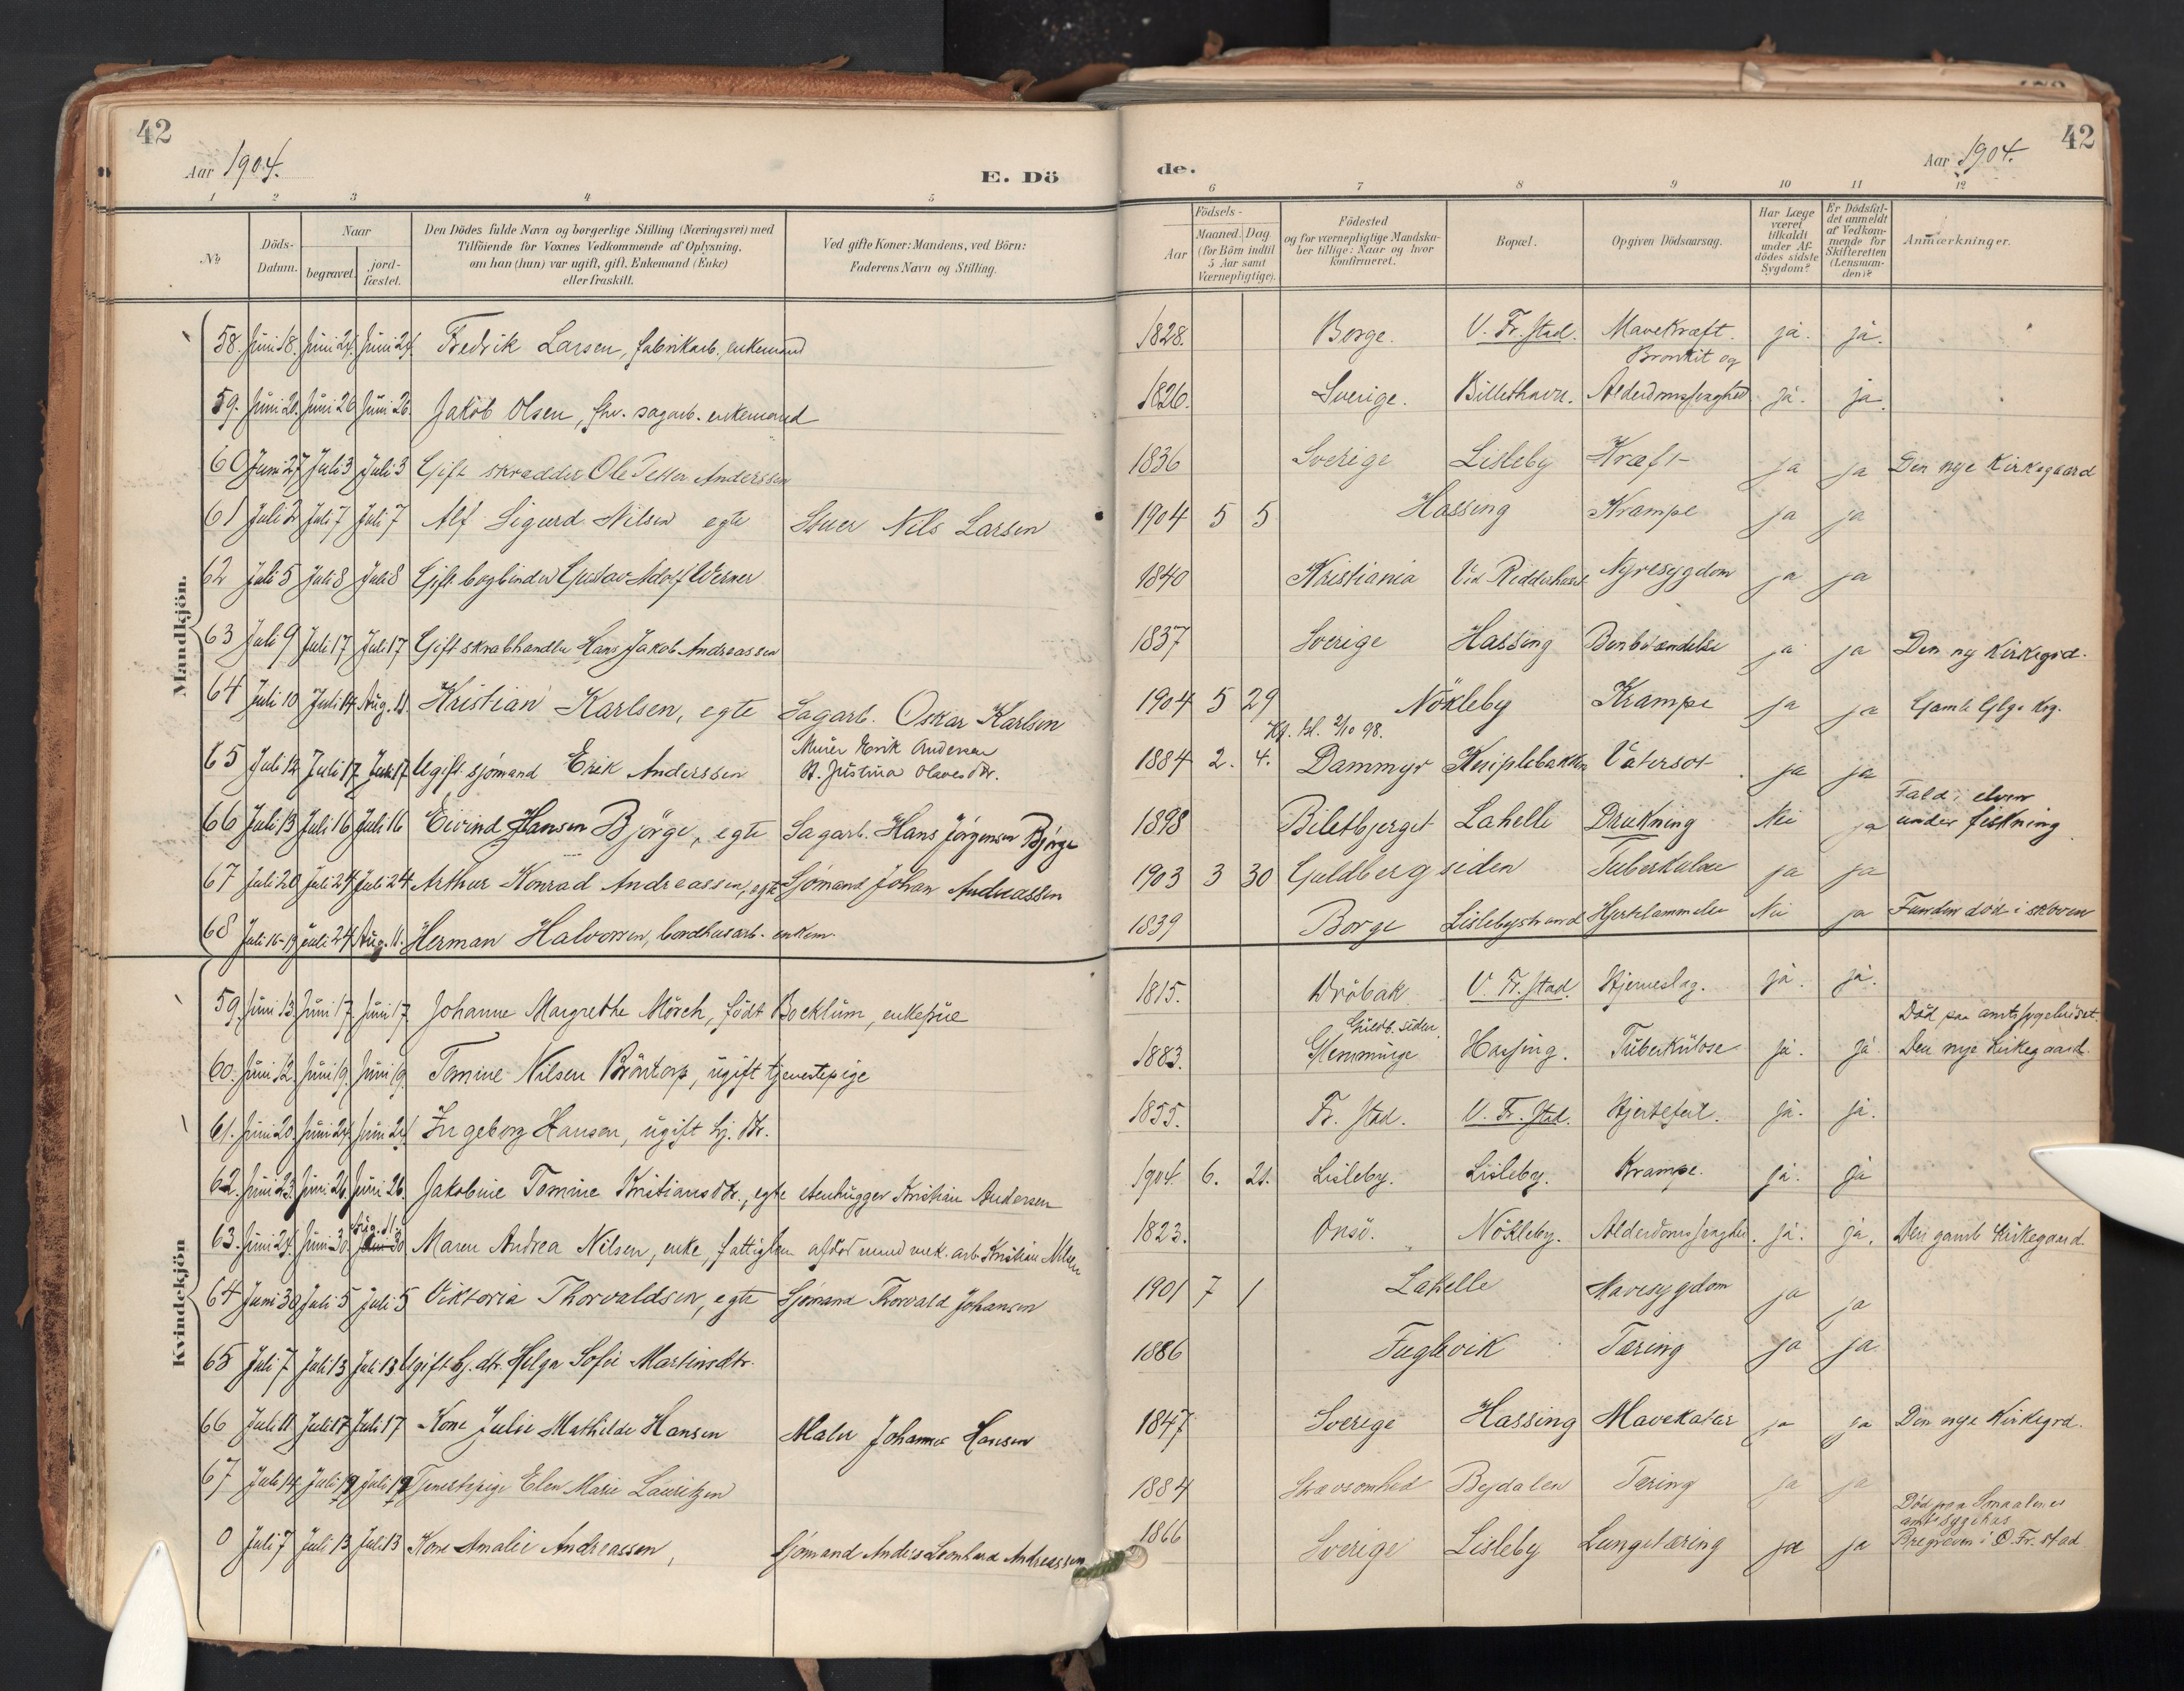 42
Aar 1904.
E. Dö
de.
Aar 1904.
42
1 2 3 4 5 6 7 8 9 10 11 12
No
Döds-Datum.
Naar
begravet.
jord-fæstet.
Den Dödes fulde Navn og borgerlige Stilling (Næringsvei) med
Tilföiende for Voxnes Vedkommende af Oplysning,
om han (hun) var ugift, gift, Enkemand (Enke)
eller fraskilt.
Ved gifte Koner: Mandens, ved Börn:
Faderens Navn og Stilling.
Födsels-
Aar
Maaned. Dag
(for Börn indtil
5 Aar samt
Værnepligtige).
Födested
og for værnepligtige Mandska-
ber tillige: Naar og hvor
konfirmeret.
Bopæl.
Opgiven Dödsaarsag.
Har Læge
været
tilkaldt
under Af-
dödes sidste
Sygdom?
Er Dödsfal-
det anmeldt
af Vedkom-
mende for
Skifteretten
(Lensman-
den)?
Anmærkninger.
Mandkjön.
58. Juni 18. Juni 24. Juni 24. Fredrik Larsen, fabrikarb. enkemand 1828. Borge. V. Fr.stad. Mavekræft. ja. ja.
59. Juni 20. Juni 26 Juni 26. Jakob Olsen, fhv. sagarb. enkemand 1826. Sverige. Billethavn. Bronkit og Alderdomssvaghed ja. ja.
60 Juni 27 Juli 3 Juli 3 Gift skrædder Ole Petter Anderssen 1836 Sverige Lisleby Kræft ja ja Den nye Kirkegaard
61 Juli 2 Juli 7 Juli 7 Alf Sigurd Nilsen egte Stuer Nils Larsen 1904 5 5 Hassing Krampe ja ja
62 Juli 5 Juli 8 Juli 8 Gift bogbinder Gustav Adolf Werner 1840 Kristiania Vid Nyresygdom ja ja
63 Juli 9 Juli 17 Juli 17 Gift skrabhandler Hans Jakob Andreassen 1837 Sverige Hassing Benbetændelse ja ja Den ny Kirkegrd.
64 Juli 10 Juli 14 Aug. 11. Kristian Karlsen, egte Sagarb. Oskar Karlsen 1904 5 29 Nökleby Krampe ja ja Gamle Glge Kg.
65 Juli 12 Juli 17 Juli 17 Ugift sjömand Erik Anderssen Murer Erik Andersen
Justina Olavesdtr. 1884 2. 4. 2/10 98. Dammyr Vatersot ja ja
66 Juli 13 Juli 16 Juli 16 Eivind Hansen Björge, egte Sagarb. Hans Jørgensen Bjørge 1898 Biletbjerget Lahelle Drukning Nei ja Fald i elven under fiskning
67 Juli 20 Juli 24 Juli 24 Arthur Konrad Andreassen, egte Sjömand Johan Andreassen 1903 3 30 Guldbergsiden Tuberkulose ja ja
68 Juli 16-19 Juli 24 Aug. 11. Herman Halvorsen, bordhusarb. enkem. 1839 Borge Lislebystrand Hjertelammelse Nei ja Funden död i skoven
Kvindekjön
59 Juni 13 Juni 17. Juni 17 Johanne Margrethe Mörch, födt Bocklum, enkefrue 1815. Dröbak V. Fr.stad. Hjerneslag. ja. ja.
60. Juni 12. Juni 19. Juni 19. Tomine Nilsen Bröntorp, ugift tjenestepige 1883. Guldb. siden Glemminge Hassing. Tuberkulose ja. ja Död paa amtssygehuset. Den nye kirkegaard.
61. Juni 20. Juni 24. Juni 24 Ingeborg Hansen, ugift hj. dtr. 1855. Fr.stad. V. Fr.stad. Hjertefeil. ja. ja.
62. Juni 23. Juni 26. Juni 26. Jakobine Tomine Kristiansdtr., egte stenhugger Kristian Andersen 1904. 6. 21. Lisleby. Lisleby. Krampe. ja. ja
63. Juni 24. Juni 30. Aug. 11. Juni 30 Maren Andrea Nilsen, enke, fattiglem afdöd mand verk. arb. Kristian Nilsen 1823. Onsö. Nökleby. Alderdomssvaghed. ja. ja. Den gamle Kirkegaard.
64 Juni 30 Juli 5 Juli 5 Viktoria Thorvaldsen, egte Sjömand Thorvald Johansen 1901 7 1 Lahelle Mavesygdom ja ja
65 Juli 7 Juli 13 Juli 13 Ugift hj. dtr. Helga Sofie Martinsdtr. 1886 Fuglevik Tæring ja ja
66 Juli 11 Juli 17 Juli 17 Kone Julie Mathilde Hansen Maler Johannes Hansen 1847 Sverige Hassing Mavekatar ja ja Den nye Kirkegrd.
67 Juli 14 Juli 19 Juli 19 Tjenestepige Elen Marie Lauritzen 1884 Bejdalen Tæring ja ja
0 Juli 7 Juli 13 Juli 13 Kone Amalie Andreassen, Sjömand Anders Leonhard Andreassen 1866 Sverige Lisleby Lungetæring ja ja Död paa Smaalenes amts sygehus Begraven i Ø. Fr.stad